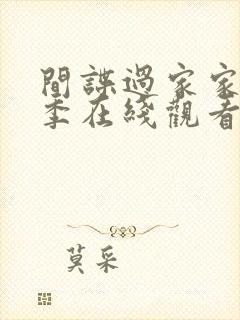 間諜過家家
季在綫觀看
莫采